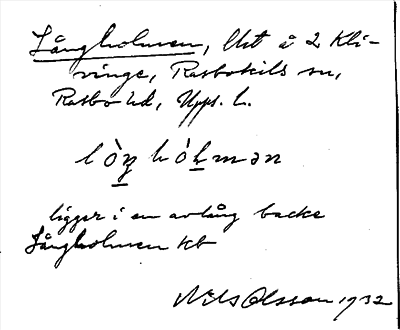 Långholmen, lht å 2 Kli-
vinge, Rasbokils sn,
Rasbo hd, Upps. l.
lòŋhólmən
ligger i en avlång backe
Långholmen kb
Nils Olsson 1932